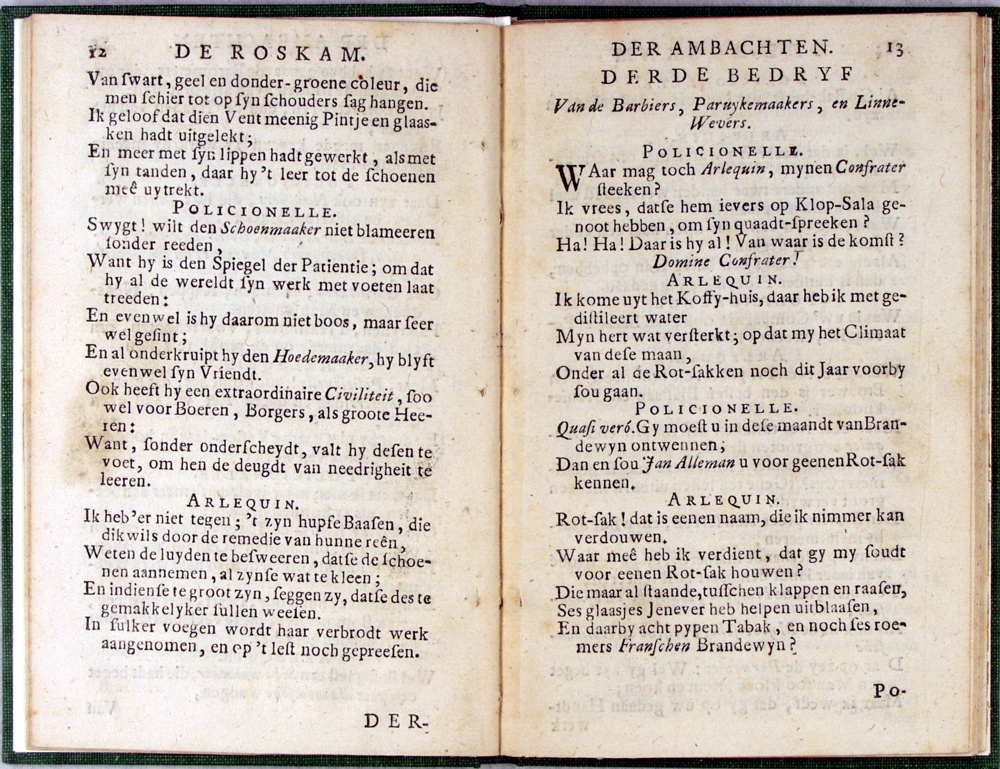 12 DE ROSKAM.
Van ſwart, geel en donder-groene coleur, die
men ſchier tot op ſyn ſchouders ſag hangen.
Ik geloof dat dien Vent meenig Pintje en glaas-
ken hadt uitgelekt;
En meer met ſyn lippen hadt gewerkt, als met
ſyn tanden, daar hy 't leer tot de ſchoenen
meê uytrekt.
POLICIONELLE.
Swygt! wilt den Schoenmaaker niet blameeren
ſonder reeden,
Want hy is den Spiegel der Patientie; om dat
hy al de wereldt ſyn werk met voeten laat
treeden:
En evenwel is hy daarom niet boos, maar ſeer
wel geſint;
En al onderkruipt hy den Hoedemaaker, hy blyft
evenwel ſyn Vriendt.
Ook heeft hy een extraordinaire Civiliteit, ſoo
wel voor Boeren, Borgers, als groote Hee-
ren:
Want, ſonder onderſcheydt, valt hy deſen te
voet, om hen de deugdt van needrigheit te
leeren.
ARLEQUIN.
Ik heb'er niet tegen; 't zyn hupſe Baaſen, die
dikwils door de remedie van hunne reên,
Weten de luyden te beſweeren, datſe de ſchoe-
nen aannemen, al zynſe wat te kleen;
En indienſe te groot zyn, ſeggen zy, datſe des te
gemakkelyker ſullen weeſen.
In ſulker voegen wordt haar verbrodt werk
aangenomen, en op 't leſt noch gepreeſen.
DER-
DER AMBACHTEN. 13
DERDE BEDRYF
Van de Barbiers, Paruykemaakers, en Linne-
Wevers.
POLICIONELLE.
WAar mag toch Arlequin, mynen Confrater
ſteeken?
Ik vrees, datſe hem ievers op Klop-Sala ge-
noot hebben, om ſyn quaadt-ſpreeken?
Ha! Ha! Daar is hy al! Van waar is de komſt?
Domine Confrater!
ARLEQUIN.
Ik kome uyt het Koffy-huis, daar heb ik met ge-
diſtileert water
Myn hert wat verſterkt; op dat my het Climaat
van deſe maan,
Onder al de Rot-ſakken noch dit Jaar voorby
ſou gaan.
POLICIONELLE.
Quaſi veró. Gy moeſt u in deſe maandt van Bran-
dewyn ontwennen;
Dan en ſou Jan Alleman u voor geenen Rot-ſak
kennen.
ARLEQUIN.
Rot-ſak! dat is eenen naam, die ik nimmer kan
verdouwen.
Waar meê heb ik verdient, dat gy my ſoudt
voor eenen Rot-ſak houwen?
Die maar al ſtaande, tuſſchen klappen en raaſen,
Ses glaasjes Jenever heb helpen uitblaaſen,
En daarby acht pypen Tabak, en noch ſes roe-
mers Franſchen Brandewyn?
Po-